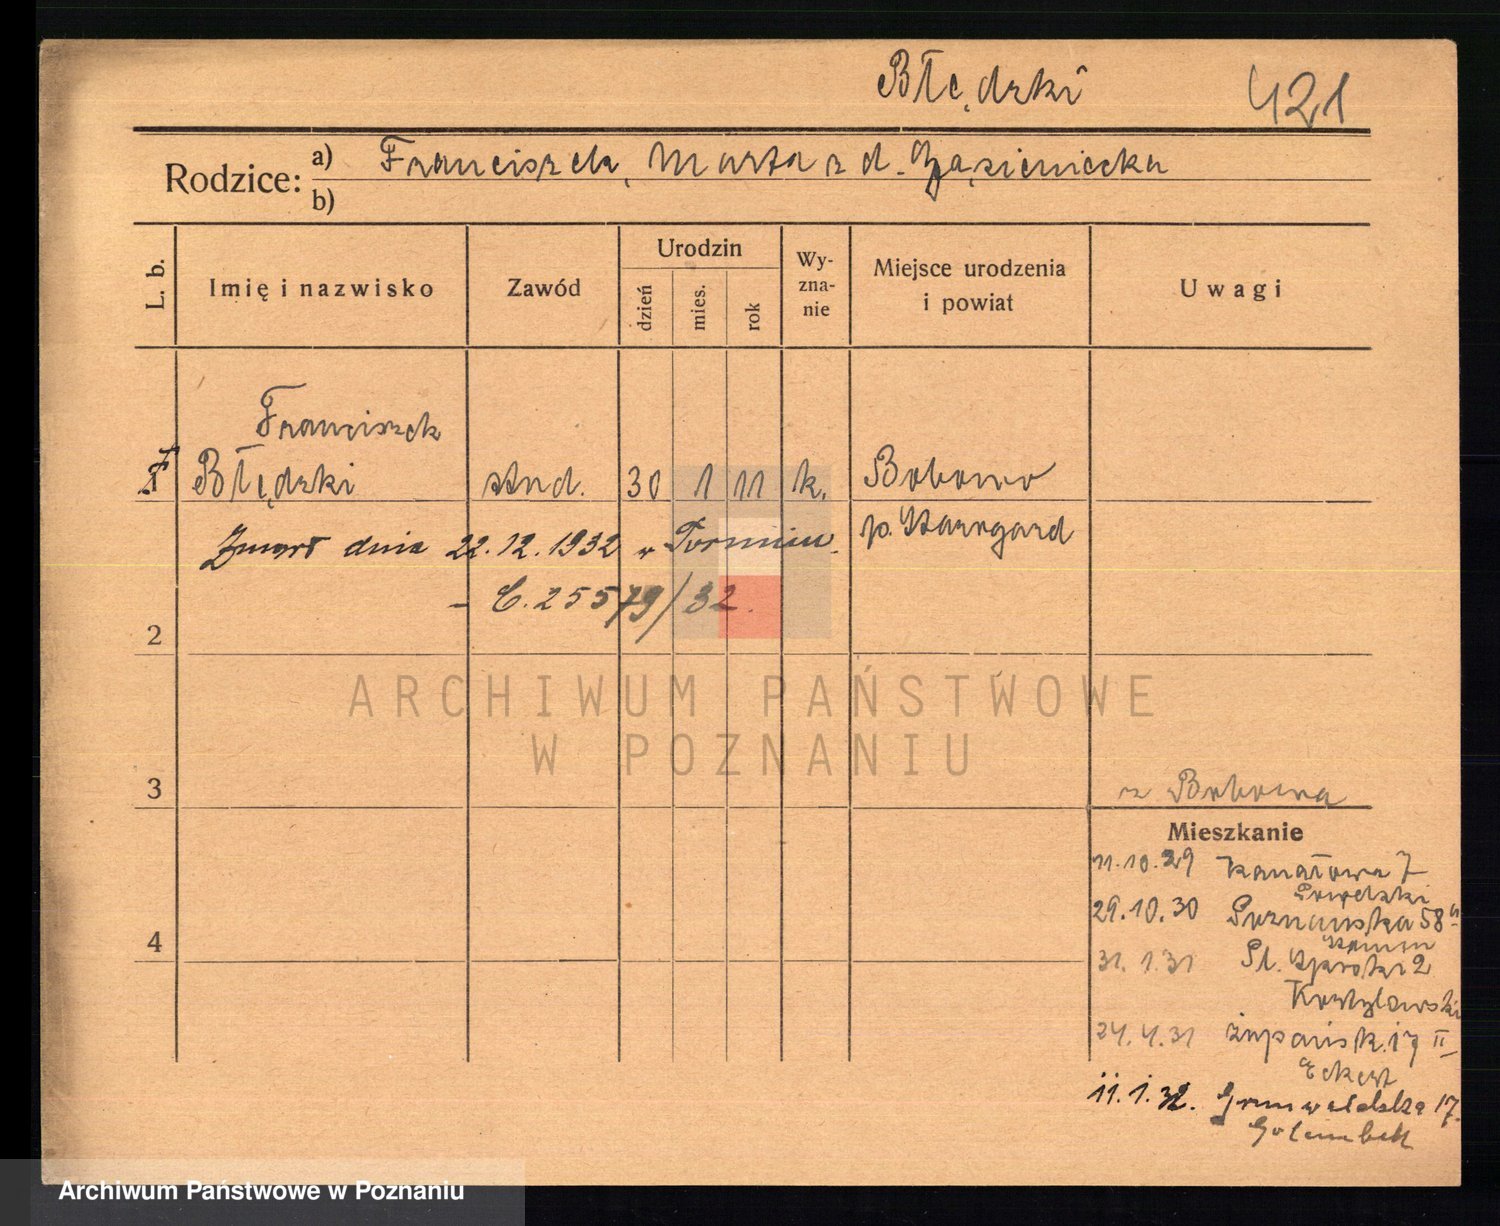 Błędzki 421
Rodzice: a) Franciszek, Marta z d. Gąsieniecka
b)
L. b. Imię i nazwisko Zawód Urodzin dzień mies. rok Wyznanie Miejsce urodzenia i powiat Uwagi
Franciszek
Błędzki stud. 30 1 11 k. Bobowo
p. Starogard
Zmarł dnia 22.12.1932 w Toruniu.
– C. 25579/32.
2
ARCHIWUM PAŃSTWOWE
W POZNANIU
3
z Bobowa
Mieszkanie
11.10.29 Kanałowa 7
29.10.30 Poznańska 58
4
31.1.31 Pl. 2
24.4.31 Żupańsk. 17 II
Eckert
11.1.32. Grunwaldzka 17.
Archiwum Państwowe w Poznaniu